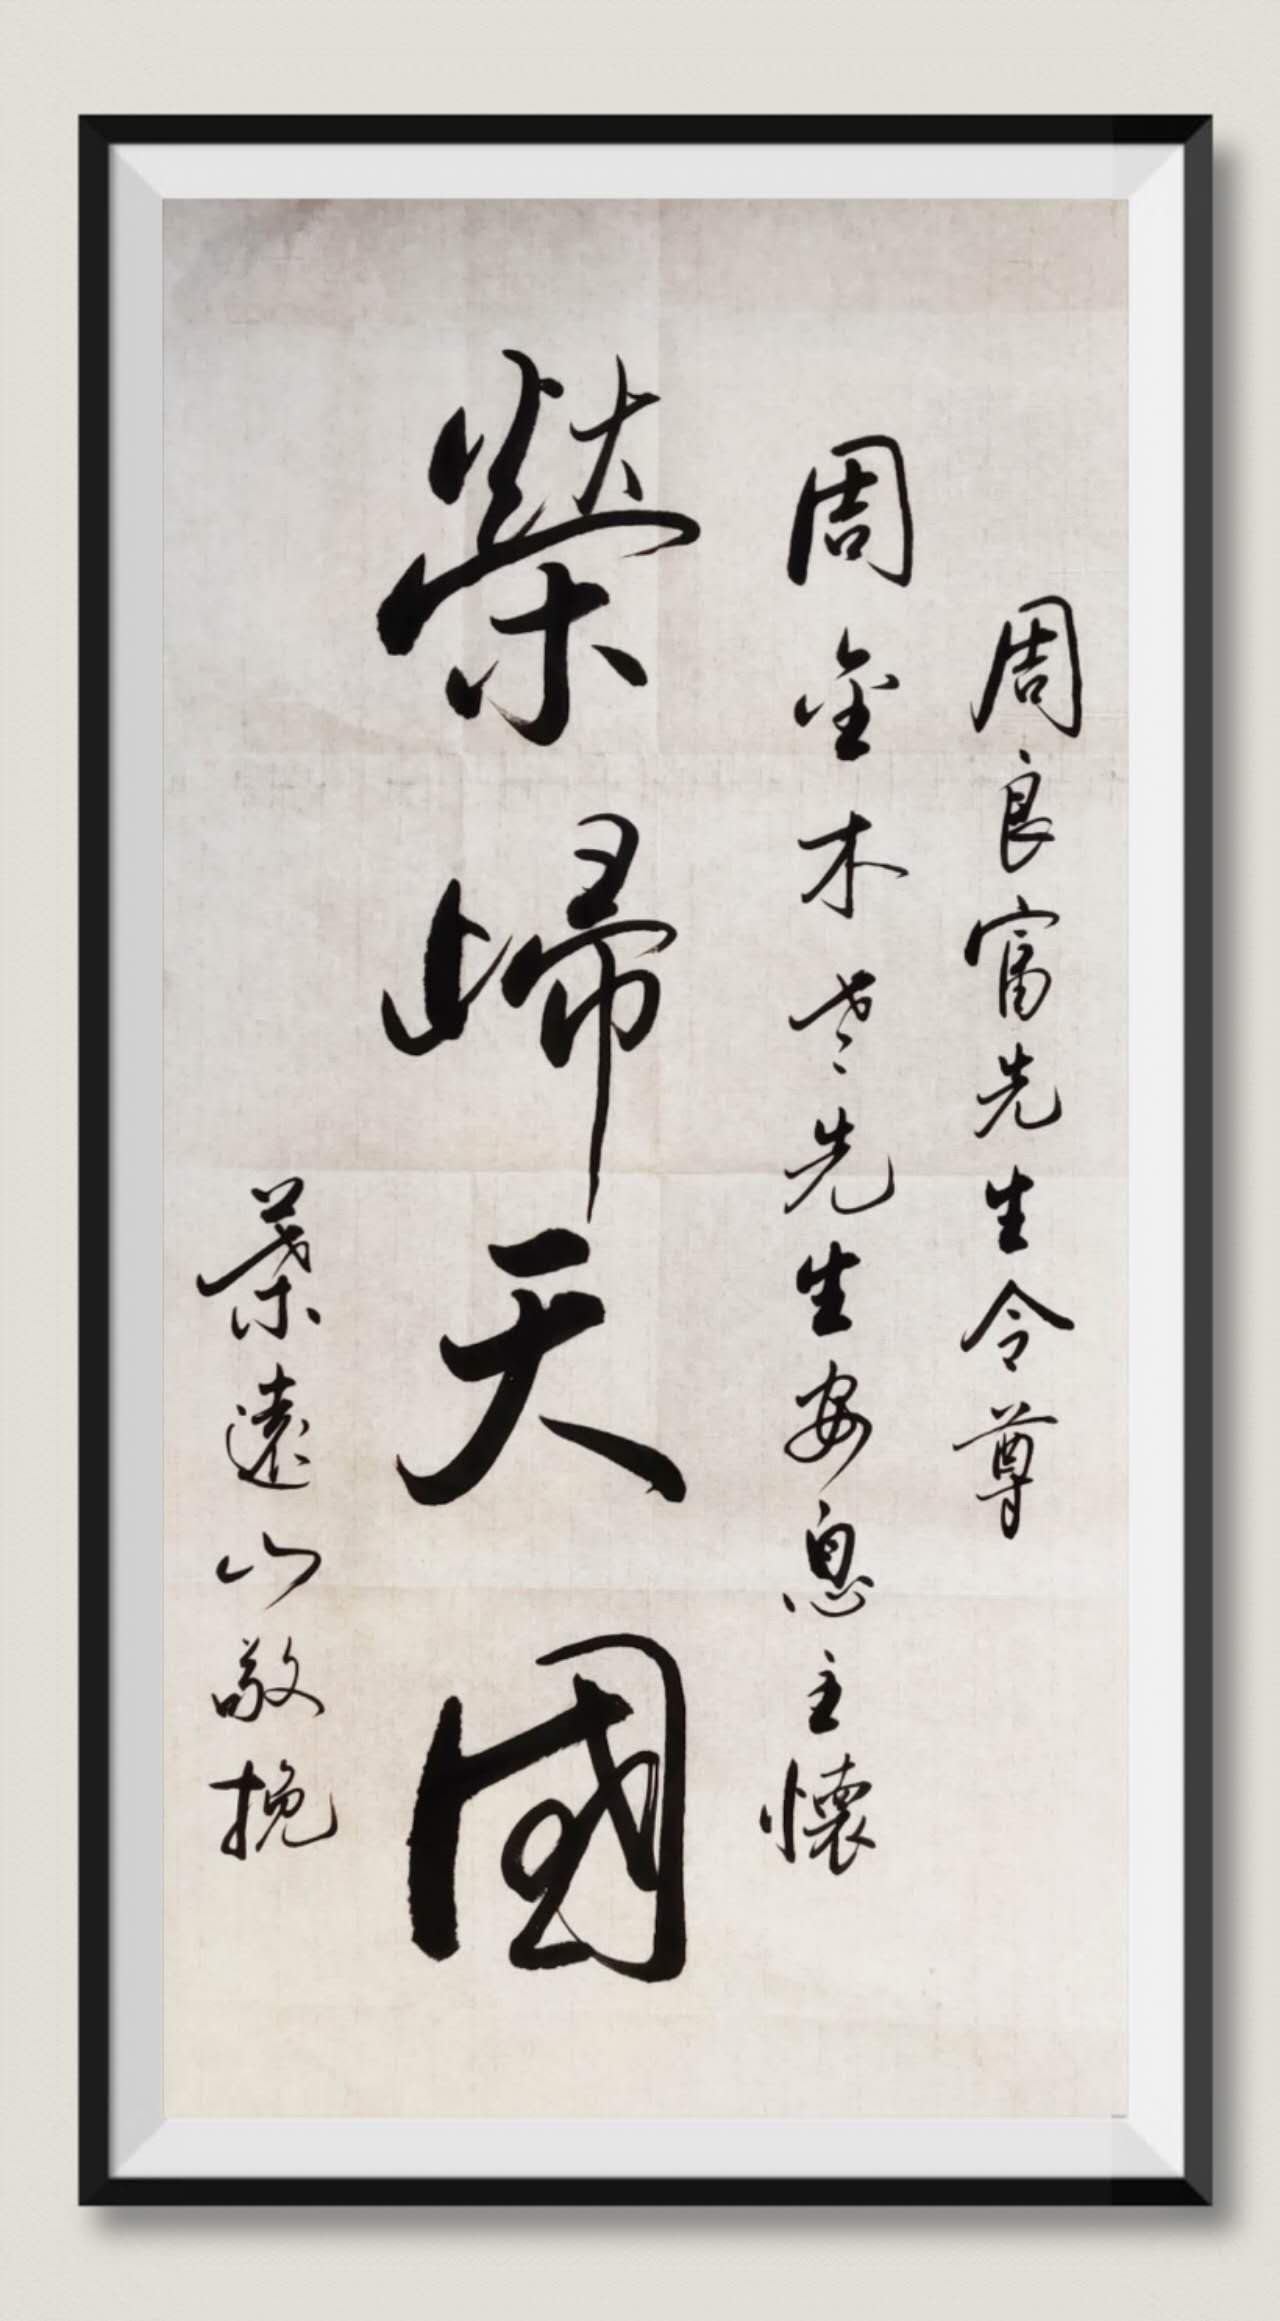 周良富先生令尊
周金木老先生安息主懷
榮歸天國
葉遠山敬挽